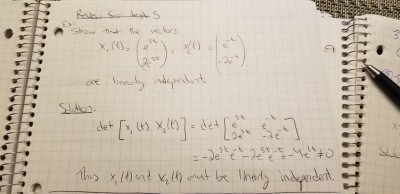 Ex: Show that the vectors
x₁(t) = (e^{3t} 2e^{3t}), x₂(t) = (e^{-t} -2e^{-t})
are linearly independent.
Solution:
det [x₁(t) x₂(t)] = det [e^{3t} e^{-t} 2e^{3t} -2e^{-t}]
= -2e^{3t}e^{-t} - 2e^{3t}e^{-t} = -4e^{2t} ≠ 0
Thus x₁(t) and x₂(t) must be linearly independent.